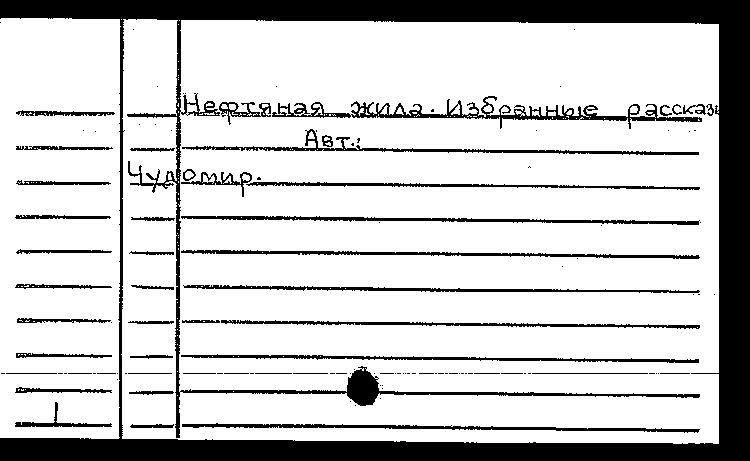 Нефтяная жила. Избранные рассказы
Авт.:
Чудомир.